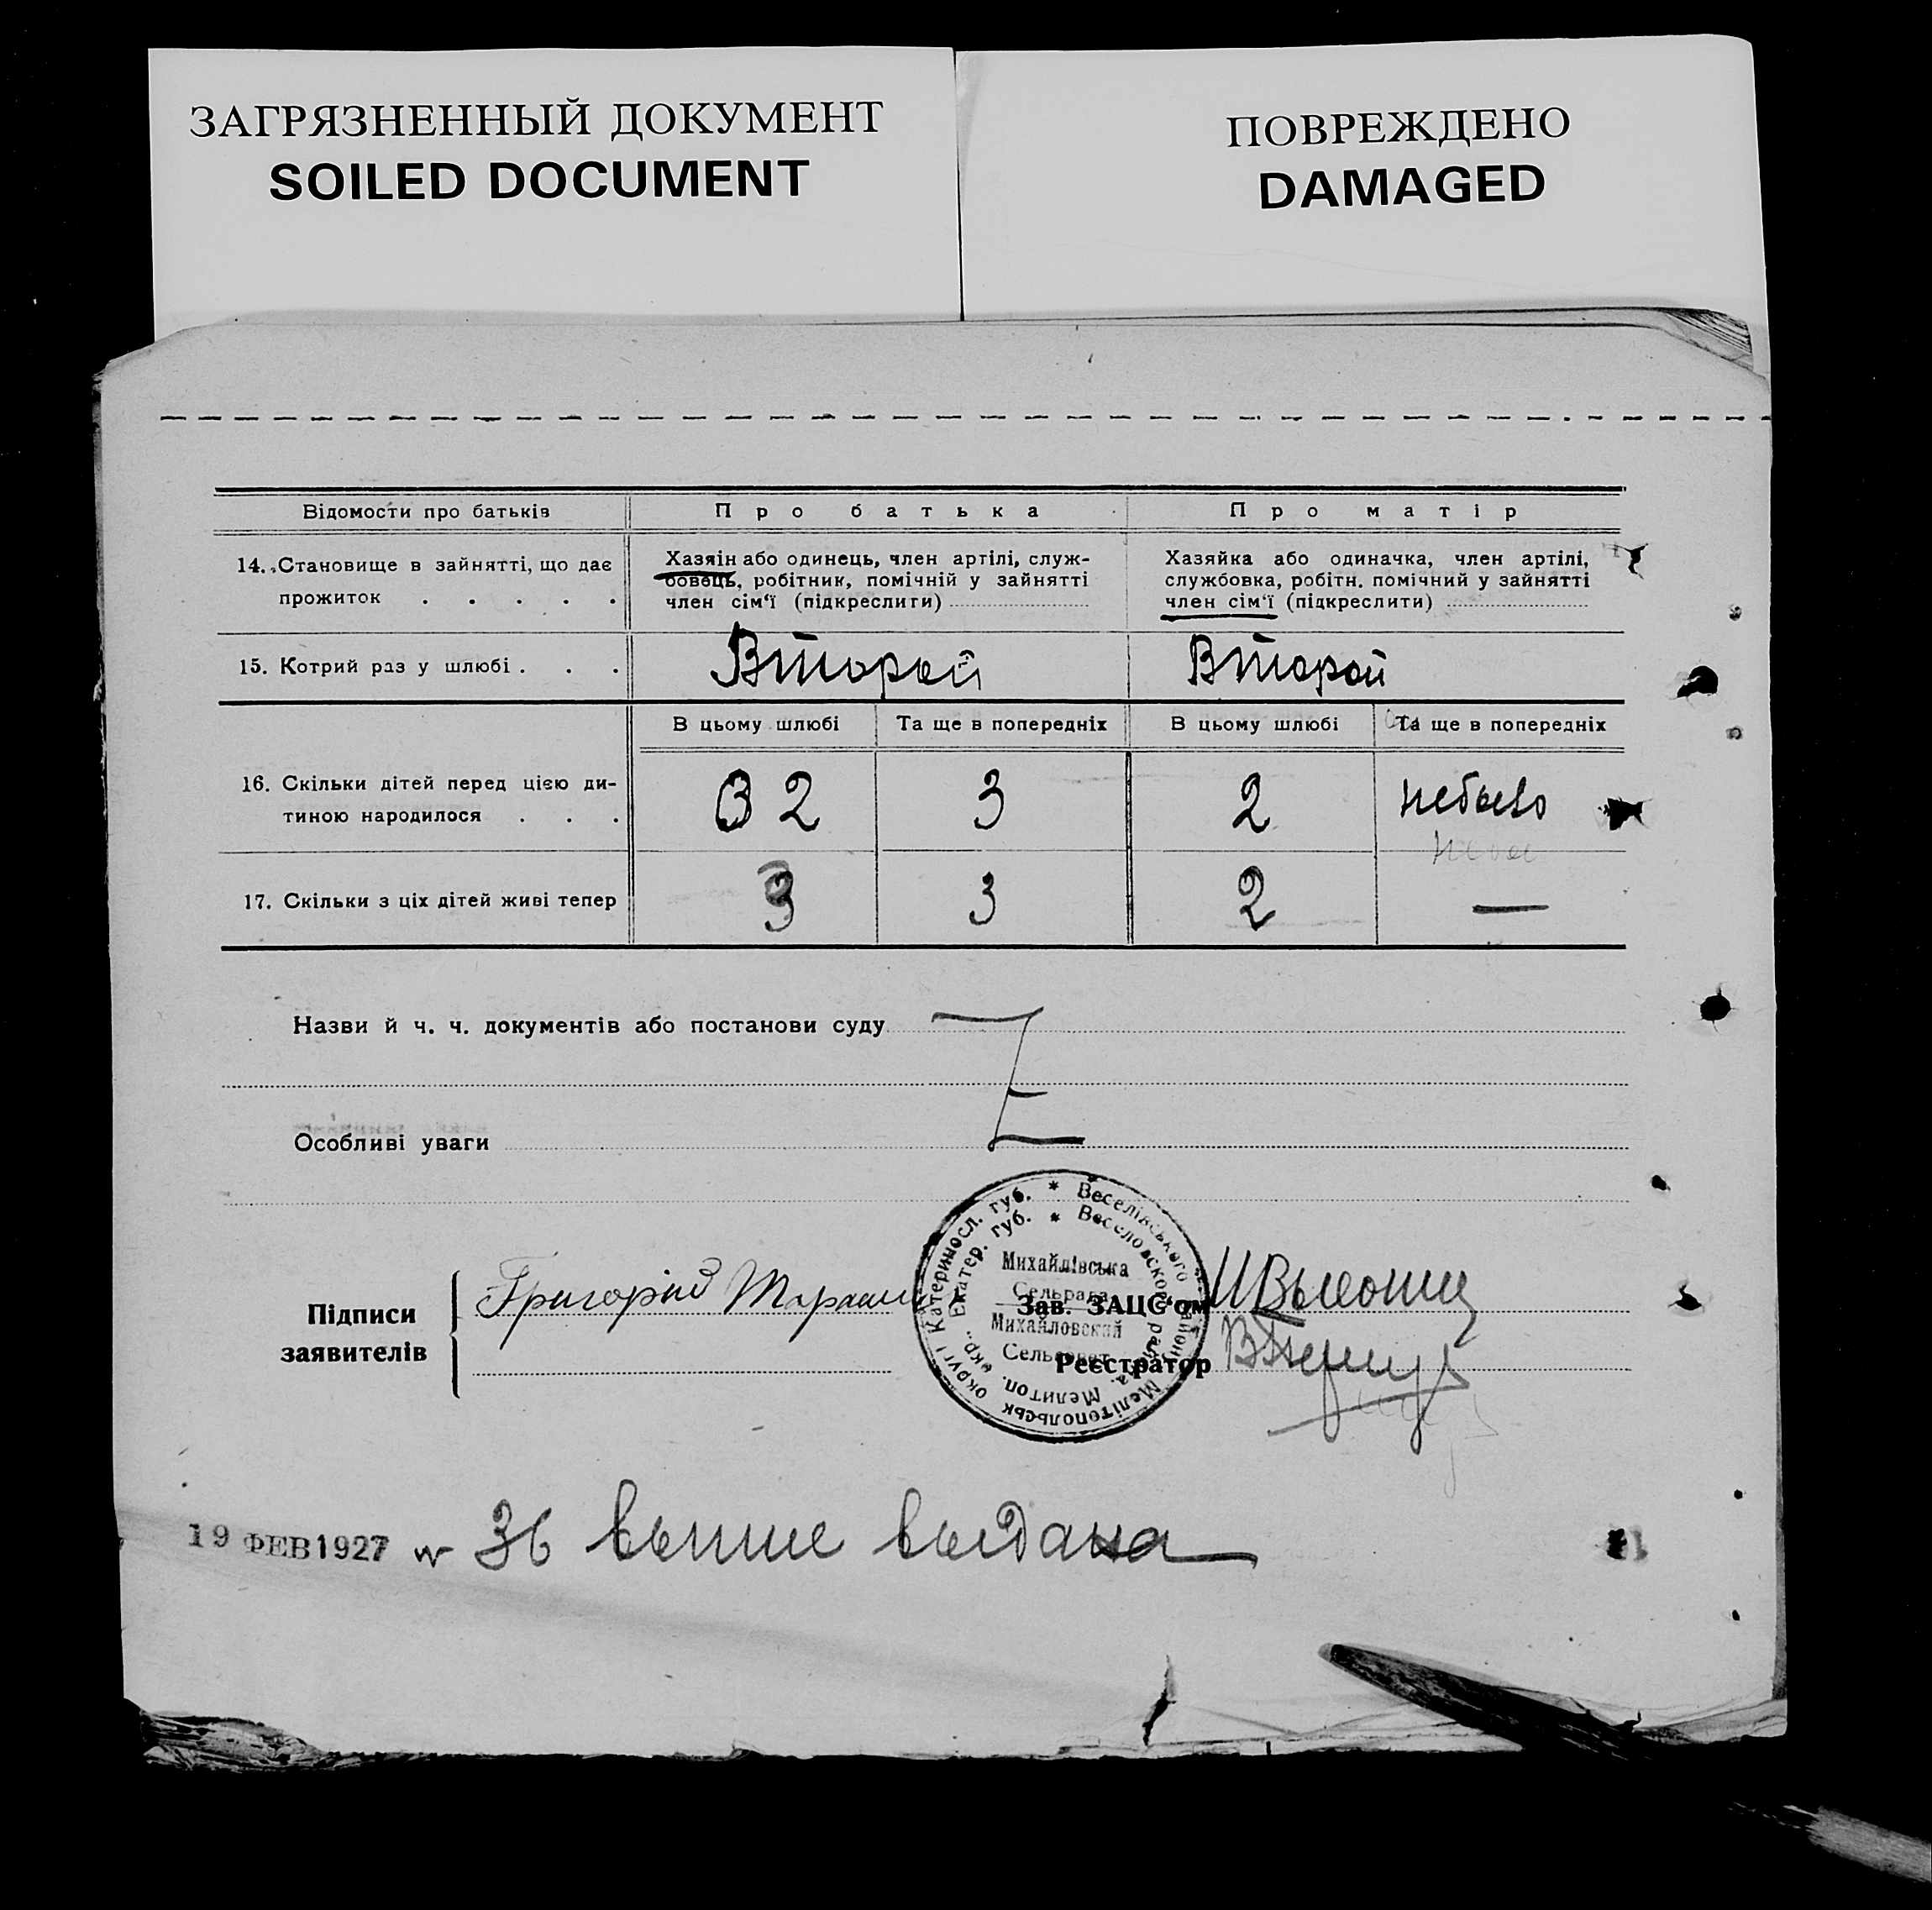 ЗАГРЯЗНЕННЫЙ ДОКУМЕНТ
SOILED DOCUMENT
ПОВРЕЖДЕНО
DAMAGED
Відомости про батьків
Про батька
Про матір
14. Становище в зайнятті, що дає
прожиток . . . . .
Хазяін або одинець, член артілі, служ-
бовець, робітник, помічній у зайнятті
член сім'ї (підкреслити)
Хазяйка або одиначка, член артілі,
службовка, робітн. помічний у зайнятті
член сім'ї (підкреслити)
15. Котрий раз у шлюбі . . .
Второй
Второй
В цьому шлюбі
Та ще в попередніх
В цьому шлюбі
Та ще в попередніх
16. Скільки дітей перед цією ди-
тиною народилося . . .
2
3
2
небыло
17. Скільки з ціх дітей живі тепер
3
3
2
—
Назви й ч. ч. документів або постанови суду
Особливі уваги
Підписи
заявителів
Григорий
Зав. ЗАЦС'ом
Реєстратор
* Веселівського району Мелітопольськ округі Катериносл. губ.
* Веселовского района. Мелитоп. окр., Екатер. губ.
Михайлівська
Сельрада
Михайловский
Сельсовет
19 ФЕВ 1927
выдана